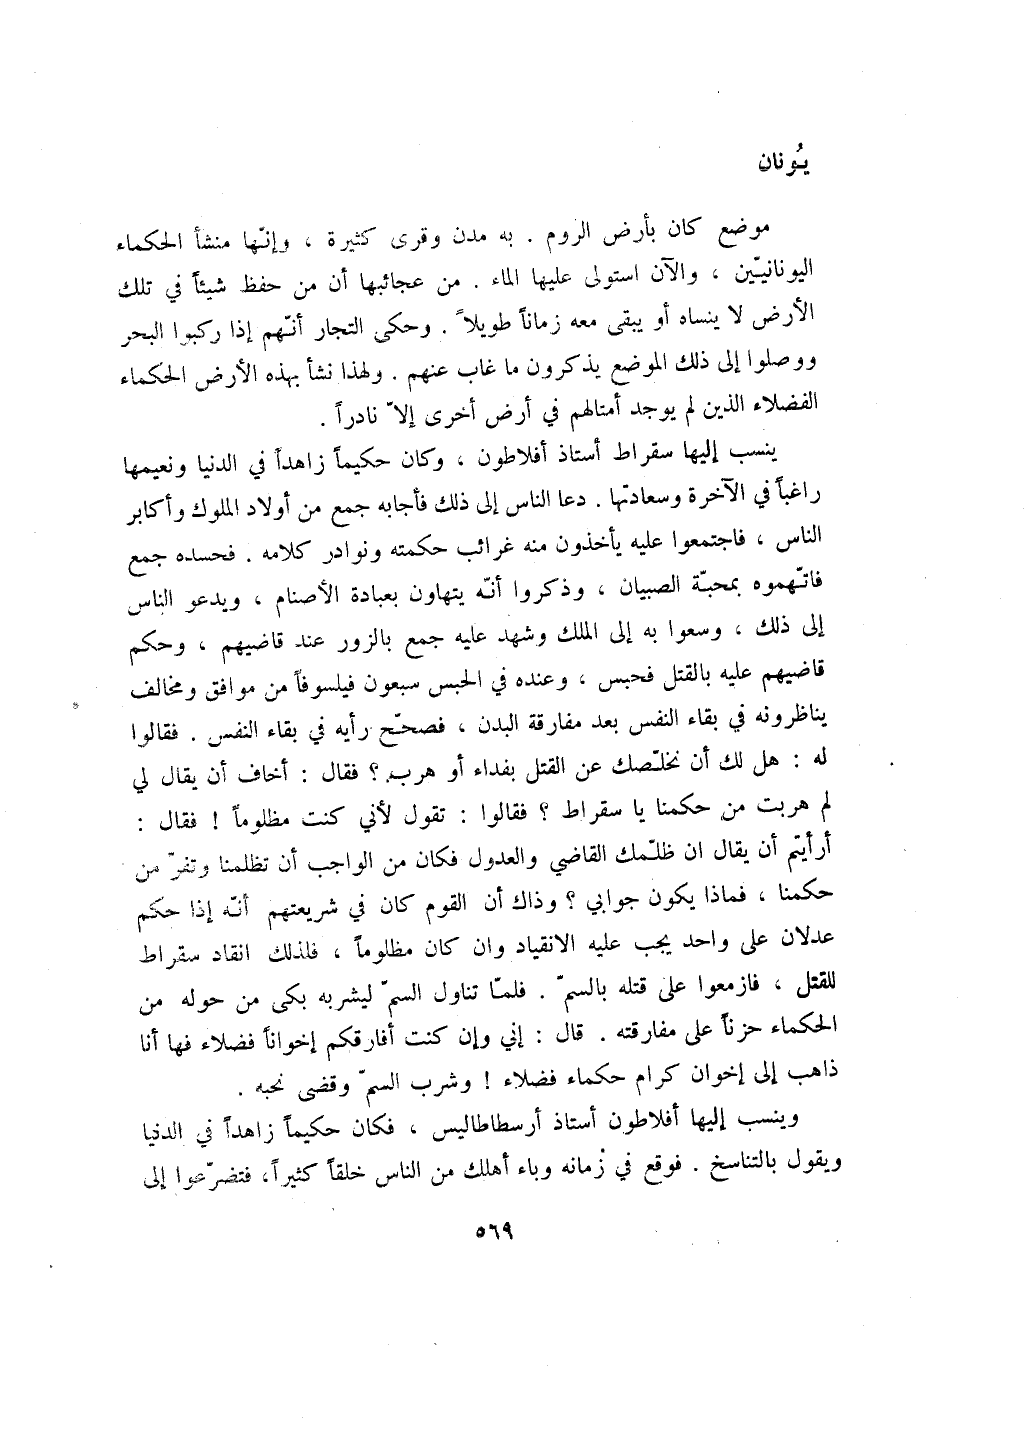 يُونان
موضع كان بأرض الروم . به مدن وقرى كثيرة ، وإنّها منشأ الحكماء
اليونانيّين ، والآن استولى عليها الماء . من عجائبها أن من حفظ شيئاً في تلك
الأرض لا ينساه أو يبقى معه زماناً طويلاً . وحكى التجار أنّهم إذا ركبوا البحر
ووصلوا إلى ذلك الموضع يذكرون ما غاب عنهم . ولهذا نشأ بهذه الأرض الحكماء
الفضلاء الذين لم يوجد أمثالهم في أرض أخرى إلاّ نادراً .
ينسب إليها سقراط أستاذ أفلاطون ، وكان حكيماً زاهداً في الدنيا ونعيمها
راغباً في الآخرة وسعادتها . دعا الناس إلى ذلك فأجابه جمع من أولاد الملوك وأكابر
الناس ، فاجتمعوا عليه يأخذون منه غرائب حكمته ونوادر كلامه . فحسده جمع
فاتّهموه بمحبّة الصبيان ، وذكروا أنّه يتهاون بعبادة الأصنام ، ويدعو الناس
إلى ذلك ، وسعوا به إلى الملك وشهد عليه جمع بالزور عند قاضيهم ، وحكم
قاضيهم عليه بالقتل فحبس ، وعنده في الحبس سبعون فيلسوفاً من موافق ومخالف
يناظرونه في بقاء النفس بعد مفارقة البدن ، فصحّح رأيه في بقاء النفس . فقالوا
له : هل لك أن نخلّصك عن القتل بفداء أو هرب ؟ فقال : أخاف أن يقال لي
لم هربت من حكمنا يا سقراط ؟ فقالوا : تقول لأني كنت مظلوماً ! فقال :
أرأيتم أن يقال ان ظلّمك القاضي والعدول فكان من الواجب أن تظلمنا وتفرّ من
حكمنا ، فماذا يكون جوابي ؟ وذاك أن القوم كان في شريعتهم أنّه إذا حكم
عدلان على واحد يجب عليه الانقياد وان كان مظلوماً ، فلذلك انقاد سقراط
للقتل ، فازمعوا على قتله بالسمّ . فلمّا تناول السمّ ليشربه بكى من حوله من
الحكماء حزناً على مفارقته . قال : إني وإن كنت أفارقكم إخواناً فضلاء فها أنا
ذاهب إلى إخوان كرام حكماء فضلاء ! وشرب السمّ وقضى نحبه .
وينسب إليها أفلاطون أستاذ أرسطاطاليس ، فكان حكيماً زاهداً في الدنيا
ويقول بالتناسخ . فوقع في زمانه وباء أهلك من الناس خلقاً كثيراً، فتضرّعوا إلى
٥٦٩